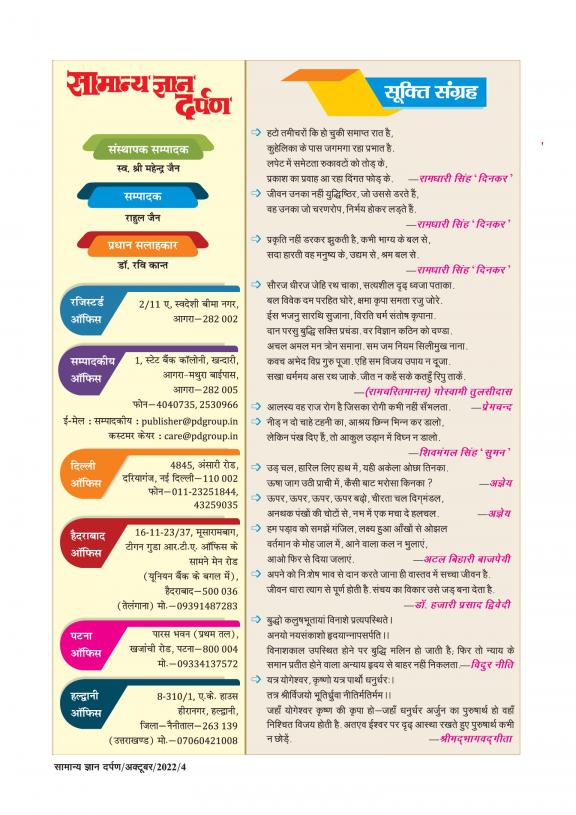 सामान्य ज्ञान
दर्पण
संस्थापक सम्पादक
स्व. श्री महेन्द्र जैन
सम्पादक
राहुल जैन
प्रधान सलाहकार
डॉ. रवि कान्त
रजिस्टर्ड
ऑफिस
2/11 ए, स्वदेशी बीमा नगर,
आगरा—282 002
सम्पादकीय
ऑफिस
1, स्टेट बैंक कॉलोनी, खन्दारी,
आगरा-मथुरा बाईपास,
आगरा—282 005
फोन—4040735, 2530966
ई-मेल : सम्पादकीय : publisher@pdgroup.in
कस्टमर केयर : care@pdgroup.in
दिल्ली
ऑफिस
4845, अंसारी रोड,
दरियागंज, नई दिल्ली—110 002
फोन—011-23251844,
43259035
हैदराबाद
ऑफिस
16-11-23/37, मूसारामबाग,
टीगन गुडा आर.टी.ए. ऑफिस के
सामने मेन रोड
(यूनियन बैंक के बगल में),
हैदराबाद—500 036
(तेलंगाना) मो.—09391487283
पटना
ऑफिस
पारस भवन (प्रथम तल),
खजांची रोड, पटना—800 004
मो.—09334137572
हल्द्वानी
ऑफिस
8-310/1, ए.के. हाउस
हीरानगर, हल्द्वानी,
जिला—नैनीताल—263 139
(उत्तराखण्ड) मो.—07060421008
सूक्ति संग्रह
हटो तमीचरों कि हो चुकी समाप्त रात है,
कुहेलिका के पास जगमगा रहा प्रभात है.
लपेट में समेटता रुकावटों को तोड़ के,
प्रकाश का प्रवाह आ रहा दिगंत फोड़ के. —रामधारी सिंह ‘दिनकर’
जीवन उनका नहीं युद्धिष्ठिर, जो उससे डरते हैं,
वह उनका जो चरणरोप, निर्भय होकर लड़ते हैं.
—रामधारी सिंह ‘दिनकर’
प्रकृति नहीं डरकर झुकती है, कभी भाग्य के बल से,
सदा हारती वह मनुष्य के, उद्यम से, श्रम बल से.
—रामधारी सिंह ‘दिनकर’
सौरज धीरज जेहि रथ चाका, सत्यशील दृढ़ ध्वजा पताका.
बल विवेक दम परहित घोरे, क्षमा कृपा समता रजु जोरे.
ईस भजनु सारथि सुजाना, विरति चर्म संतोष कृपाना.
दान परसु बुद्धि सक्ति प्रचंडा. वर विज्ञान कठिन को दण्डा.
अचल अमल मन त्रोन समाना. सम जम नियम सिलीमुख नाना.
कवच अभेद विप्र गुरु पूजा. एहि सम विजय उपाय न दूजा.
सखा धर्ममय अस रथ जाके. जीत न कहँ सके कतहुँ रिपु ताकें.
—(रामचरितमानस) गोस्वामी तुलसीदास
आलस्य वह राज रोग है जिसका रोगी कभी नहीं सँभलता. —प्रेमचन्द
नीड़ न दो चाहे टहनी का, आश्रय छिन्न भिन्न कर डालो,
लेकिन पंख दिए हैं, तो आकुल उड़ान में विघ्न न डालो.
—शिवमंगल सिंह ‘सुमन’
उड़ चल, हारिल लिए हाथ में, यही अकेला ओछा तिनका.
ऊषा जाग उठी प्राची में, कैसी बाट भरोसा किनका ? —अज्ञेय
ऊपर, ऊपर, ऊपर, ऊपर बढ़ो, चीरता चल दिग्मंडल,
अनथक पंखों की चोटों से, नभ में एक मचा दे हलचल. —अज्ञेय
हम पड़ाव को समझे मंजिल, लक्ष्य हुआ आँखों से ओझल
वर्तमान के मोह जाल में, आने वाला कल न भुलाएं,
आओ फिर से दिया जलाएं. —अटल बिहारी बाजपेयी
अपने को निःशेष भाव से दान करते जाना ही वास्तव में सच्चा जीवन है.
जीवन धारा त्याग से पूर्ण होती है. संचय का विकार उसे जड़ बना देता है.
—डॉ. हजारी प्रसाद द्विवेदी
बुद्धो कलुषभूतायां विनाशे प्रत्यपस्थिते।
अनयो नयसंकाशो हृदयान्नापसर्पति।।
विनाशकाल उपस्थित होने पर बुद्धि मलिन हो जाती है, फिर तो न्याय के
समान प्रतीत होने वाला अन्याय हृदय से बाहर नहीं निकलता.—विदुर नीति
यत्र योगेश्वर, कृष्णो यत्र पार्थो धनुर्धरः।
तत्र श्रीर्विजयो भूतिर्ध्रुवा नीतिर्मतिर्मम।।
जहाँ योगेश्वर कृष्ण की कृपा हो—जहाँ धनुर्धर अर्जुन का पुरुषार्थ हो वहाँ
निश्चित विजय होती है. अतएव ईश्वर पर दृढ़ आस्था रखते हुए पुरुषार्थ कभी
न छोड़ें. —श्रीमद्भागवद्गीता
सामान्य ज्ञान दर्पण/अक्टूबर/2022/4